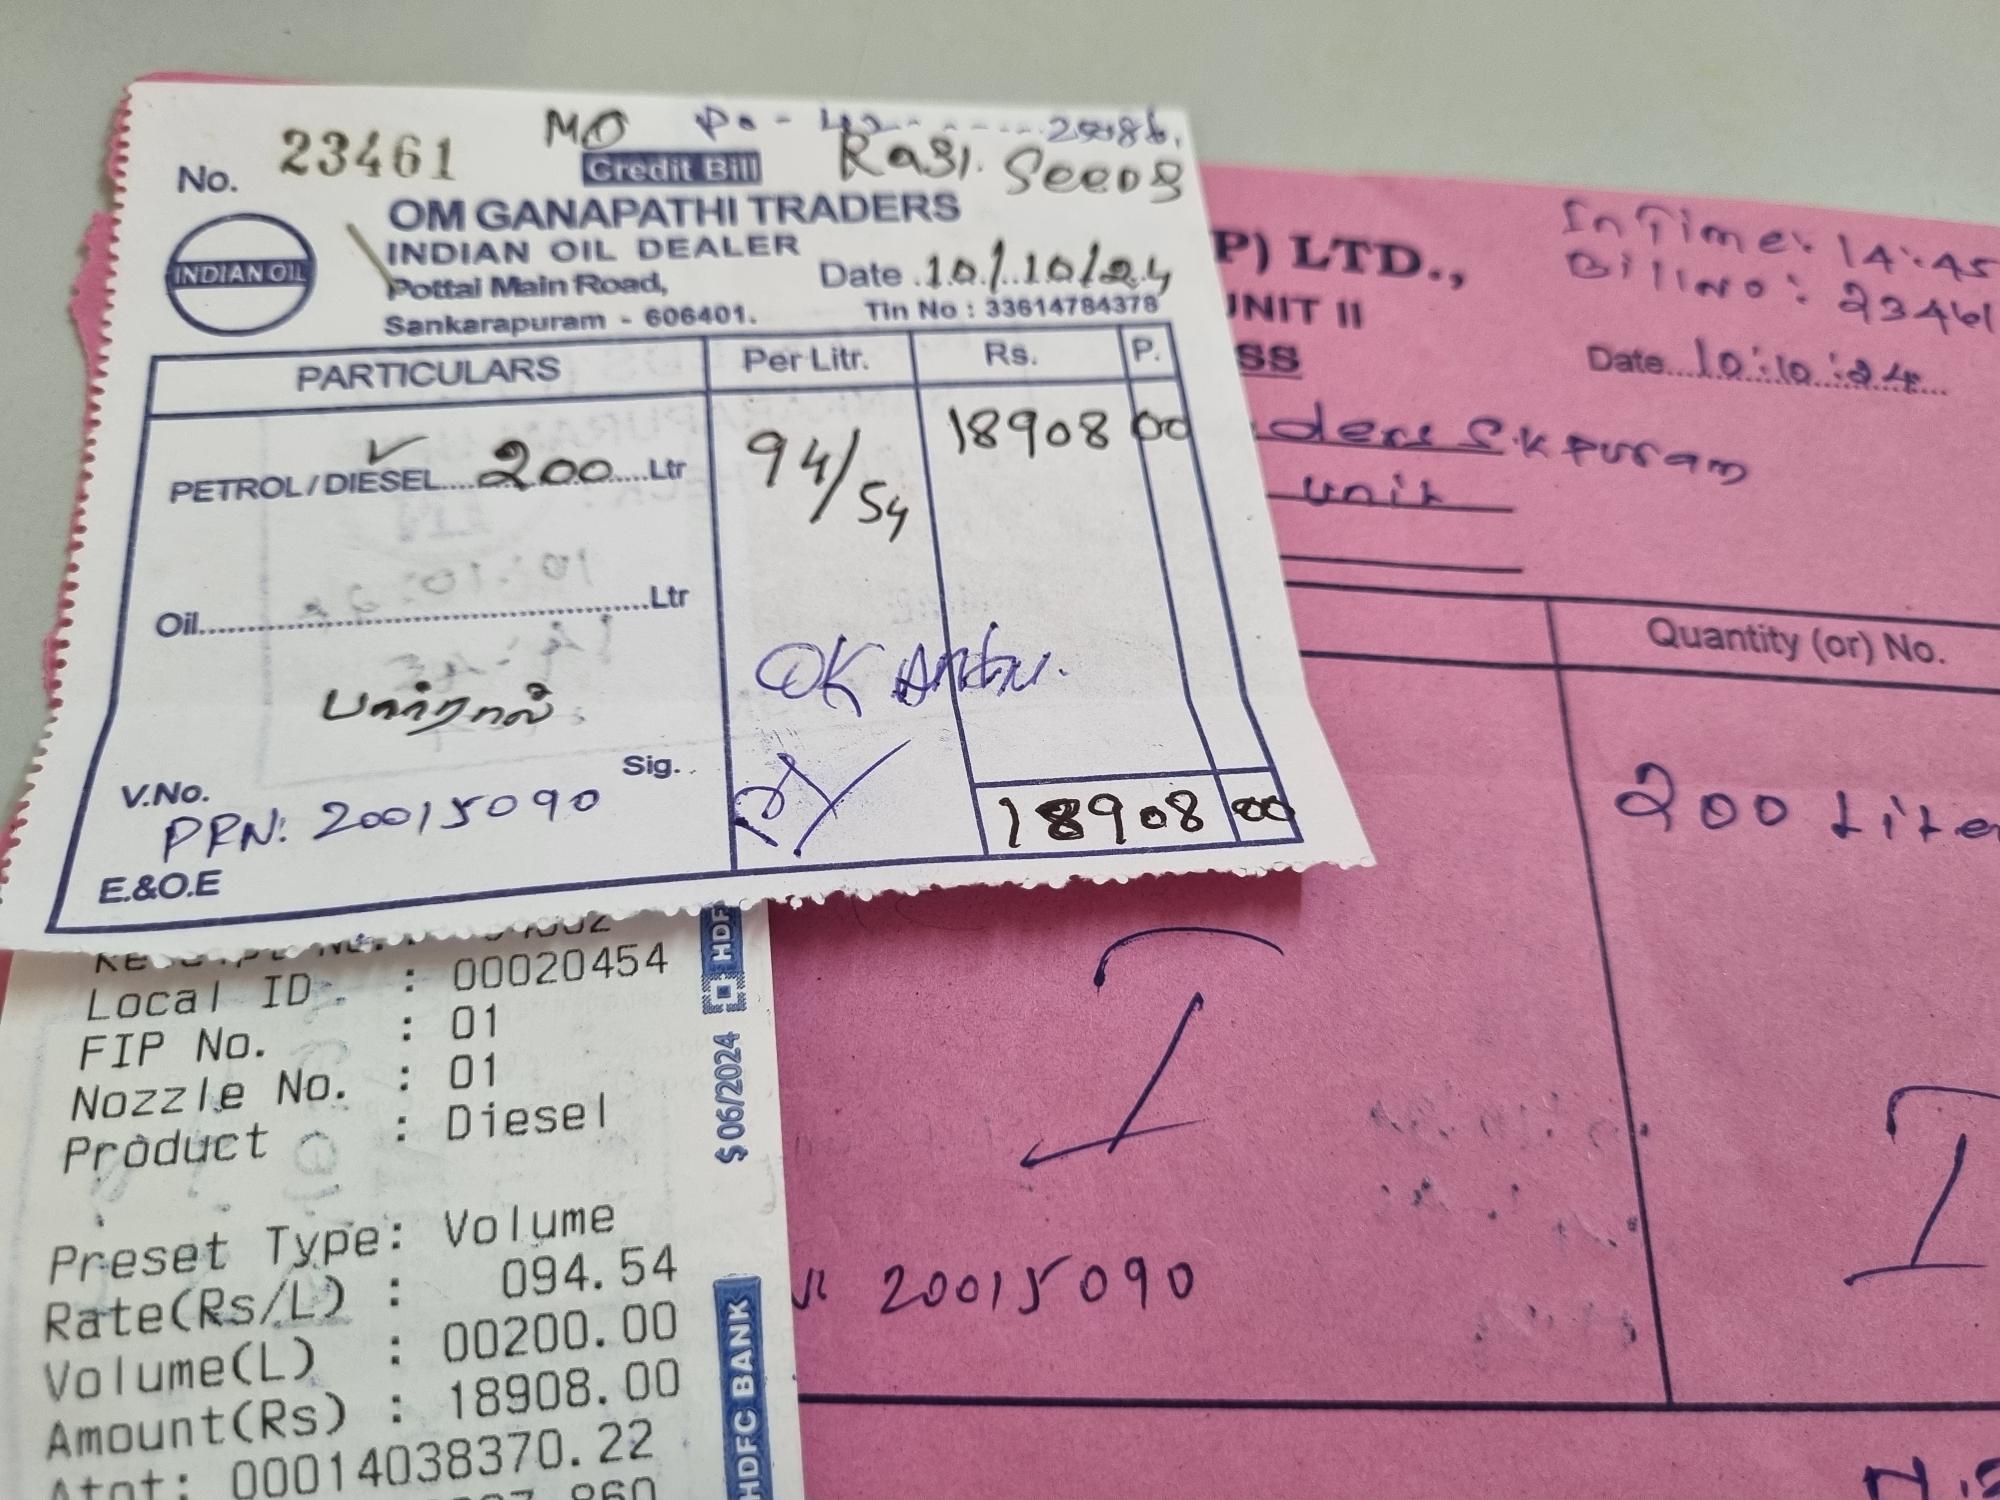 No. 23461
MO Po - 42
Credit Bill Rasi. Seeds
OM GANAPATHI TRADERS
INDIAN OIL DEALER
INDIAN OIL
Pottai Main Road,
Date 10/10/24
Sankarapuram - 606401.
Tin No : 33614784378
PARTICULARS Per Litr. Rs. P.
PETROL / DIESEL 200 Ltr 94/54 18908 00
Oil Ltr
OK
பார்ரால்
V.No. Sig.
PRN: 20015090
18908 00
E.&O.E
Receipt No. :
Local ID : 00020454
FIP No. : 01
Nozzle No. : 01
Product : Diesel
Preset Type: Volume
Rate(Rs/L) : 094.54
Volume(L) : 00200.00
Amount(Rs) : 18908.00
Atot: 00014038370.22
860
HDF
$ 06/2024
HDFC BANK
P) LTD.,
UNIT II
SS
InTime: 14:45
Bill No: 23461
Date 10:10:24
ders S.K Puram
unit
Quantity (or) No.
200 Lite
20015090